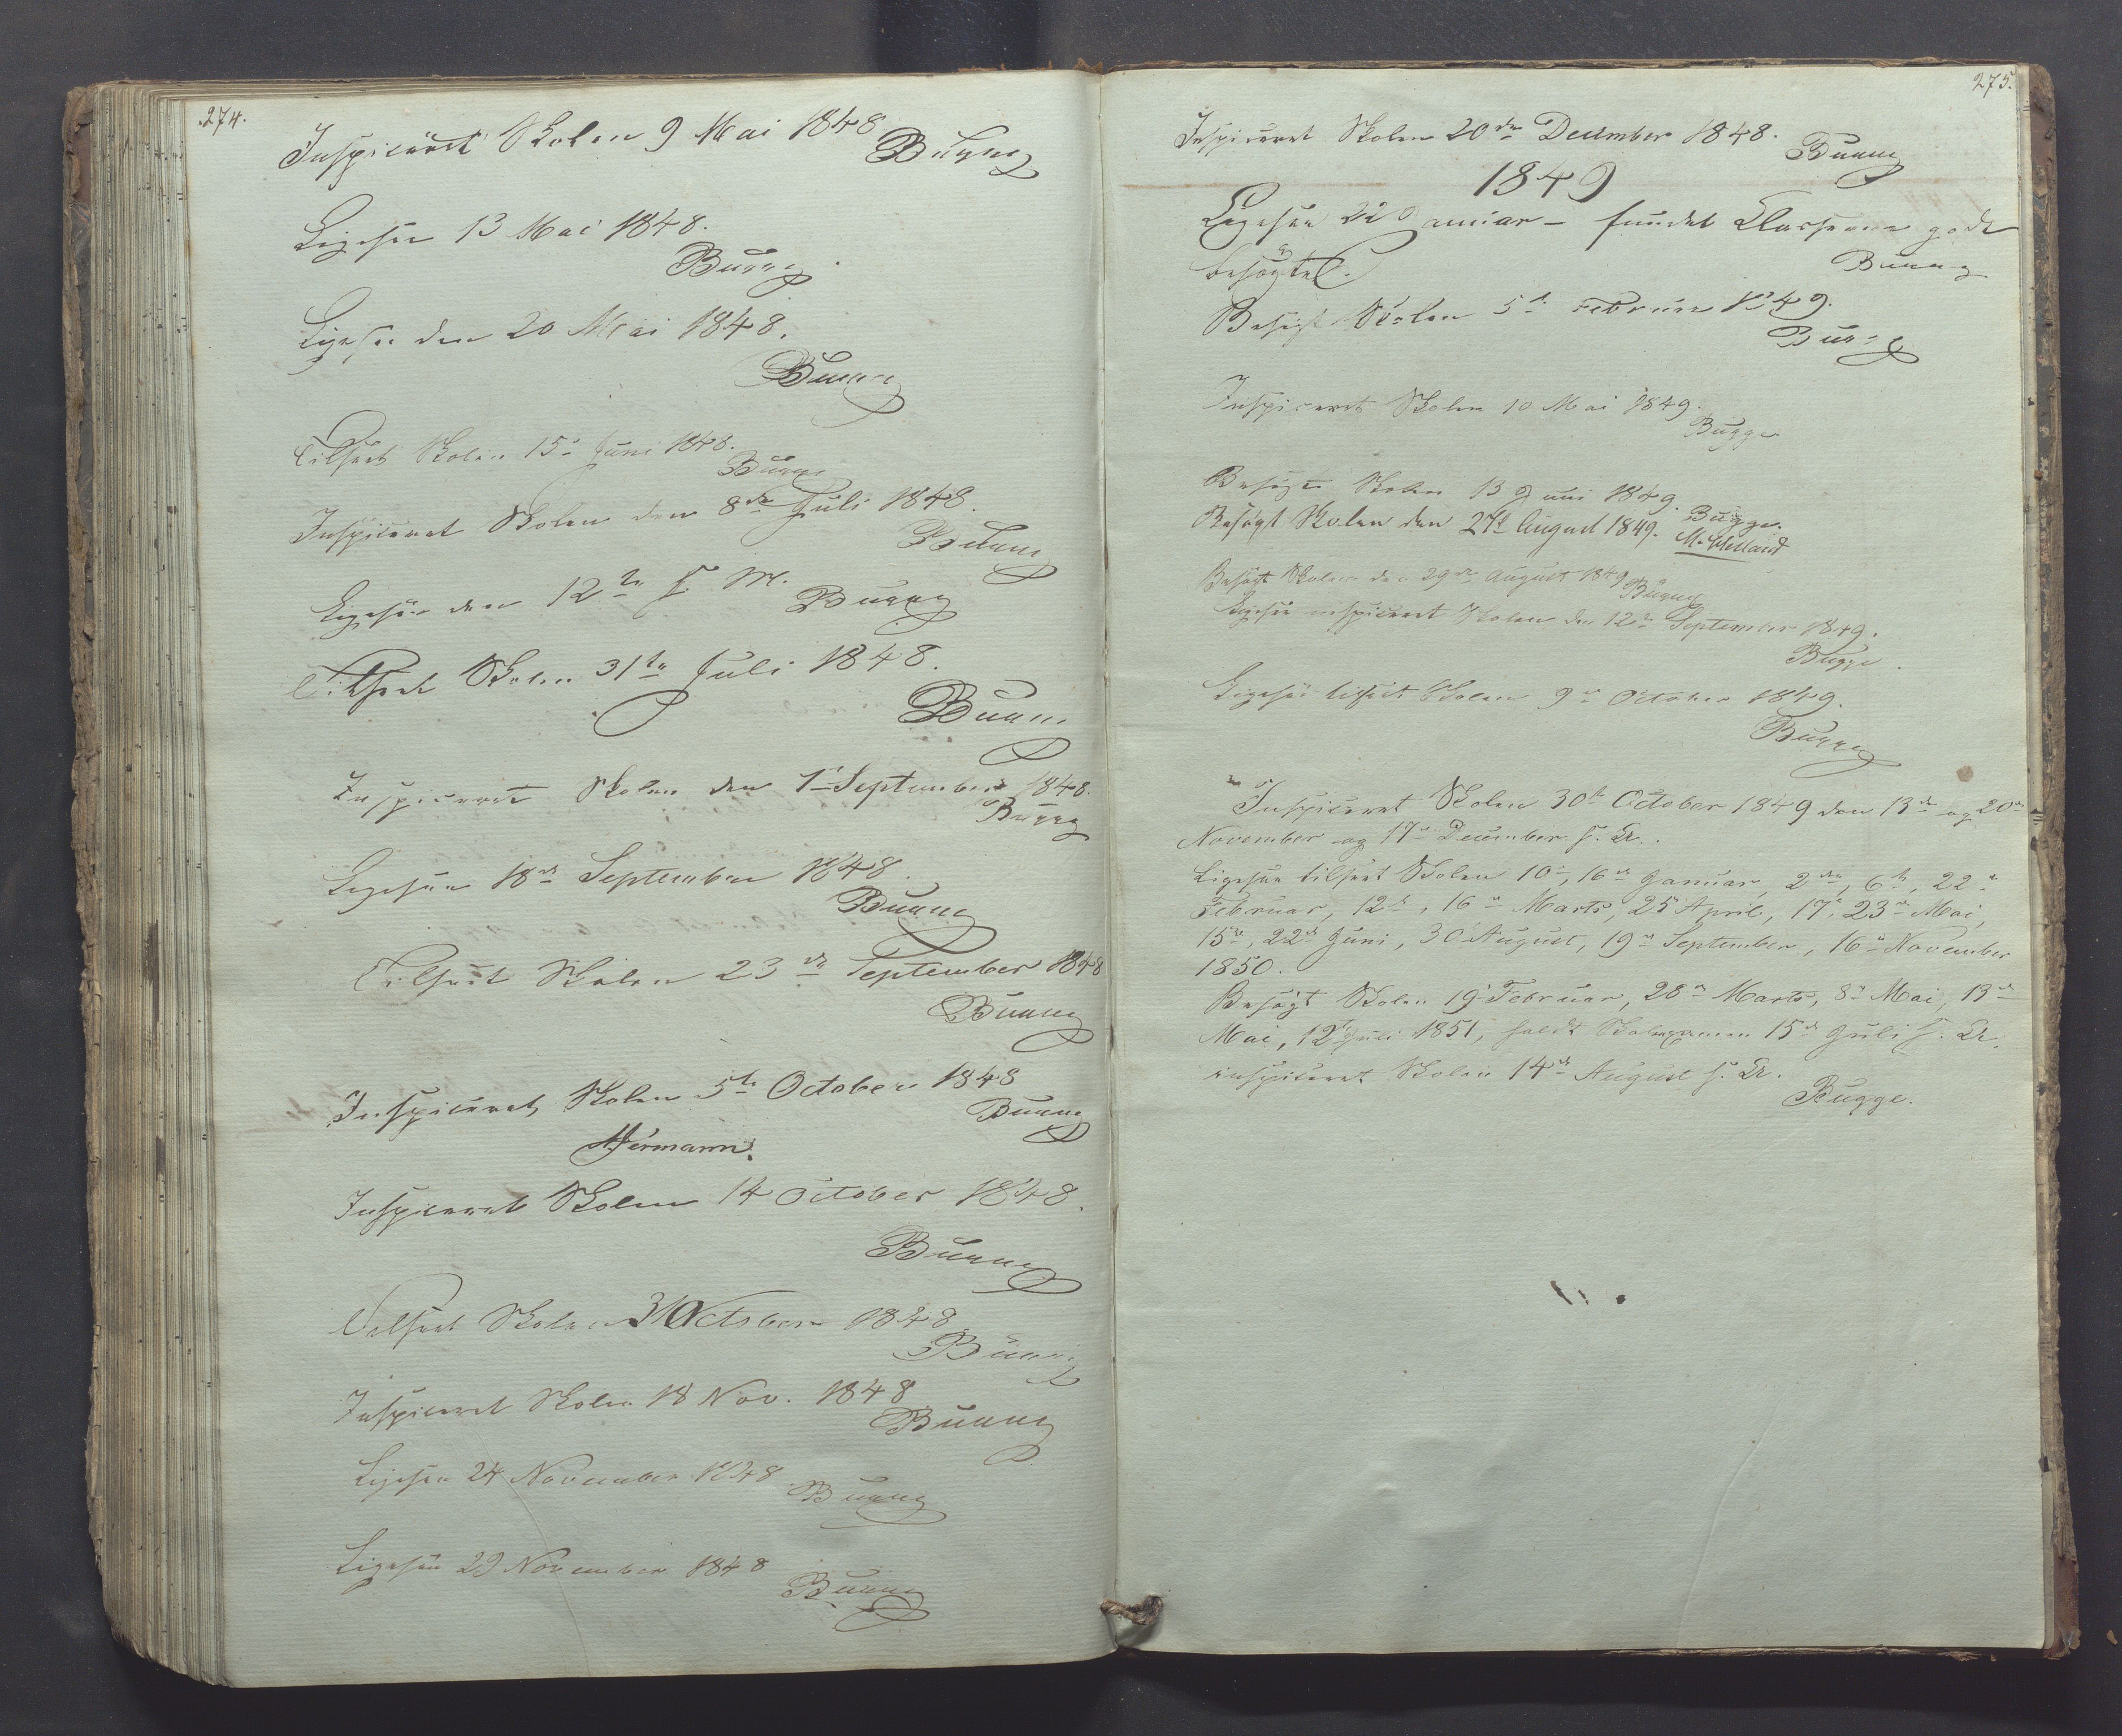 274.
Inspiceret Skolen 9 Mai 1848
Bugge
Ligesaa 13 Mai 1848.
Bugge
Ligesaa den 20 Mai 1848.
Bugge
Tilseet Skolen 15de Juni 1848.
Bugge
Inspiceret Skolen den 8de Juli 1848.
Bugge
Ligesaa den 12te s. M.
Bugge
Tilseet Skolen 31te Juli 1848.
Bugge
Inspiceret Skolen den 1 September 1848.
Bugge
Ligesaa 18de September 1848.
Bugge
Tilseet Skolen 23de September 1848
Bugge
Inspiceret Skolen 5te October 1848
Bugge
Hermann.
Inspiceret Skolen 14 October 1848.
Bugge
Tilseet Skolen 31 October 1848
Bugge
Inspiceret Skolen 18 Nov. 1848
Bugge
Ligesaa 24 November 1848
Bugge
Ligesaa 29 November 1848
Bugge
275.
Inspiceret Skolen 20de December 1848.
Bugge
1849
Ligesaa 22 Januar - fundet Classerne godt
besøgte.
Bugge
Besøgt Skolen 5te Februar 1849.
Bugge
Inspiceret Skolen 10 Mai 1849.
Bugge
Besøgt Skolen 13 Juni 1849.
Bugge.
Besøgt Skolen den 27de August 1849.
Besøgt Skolen den 29de August 1849
Bugge
Ligesaa inspiceret Skolen den 12te September 1849.
Bugge.
Ligesaa tilseet Skolen 9de October 1849.
Bugge
Inspiceret Skolen 30te October 1849 den 13de og 20de
November og 17de December s. A.
Ligesaa tilseet Skolen 10de, 16de Januar, 2den, 6te, 22de
Februar, 12te, 16de Marts, 25 April, 17de, 23de Mai,
15de, 22de Juni, 30 August, 19de September, 16de November
1850.
Besøgt Skolen 19 Februar, 28de Marts, 8de Mai, 13de
Mai, 12te Juli 1851, holdt Skoleexamen 15de Juli s. A.
inspiceret Skolen 14de August s. A.
Bugge.